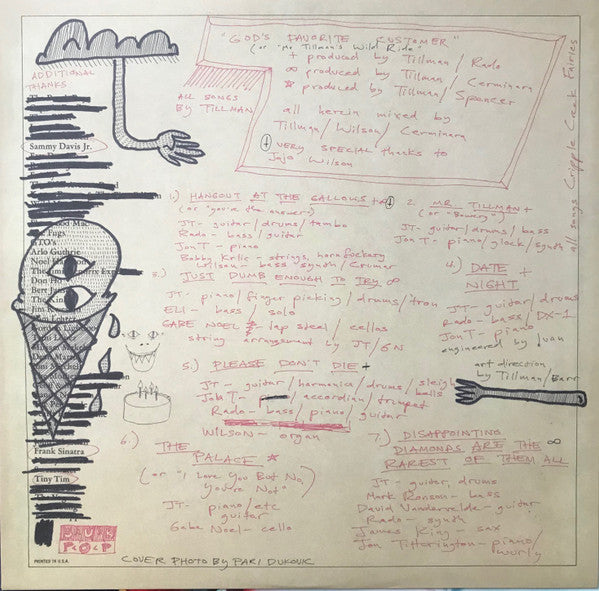 "GOD'S FAVORITE CUSTOMER"
(or "Mr. Tillman's Wild Ride"
+ produced by Tillman / Rado
∞ produced by Tillman / Cerminara
☆ produced by Tillman / Spencer
all herein mixed by
Tillman / Wilson / Cerminara
VERY SPECIAL thanks to
JoJo Wilson
ADDITIONAL
THANKS
ALL SONGS
BY TILLMAN
all songs Cripple Creek Fairies
Sammy Davis Jr.
Fugs
GTO's
Arlo Guthrie
Don Ho
Frank Sinatra
Tiny Tim
1.) HANGOUT AT THE GALLOWS +
(or "you're the answer")
JT- guitar / drums / tambo
Rado - bass / guitar
JonT - piano
Bobby Krlic - strings, horn fuckery
Wilson - bass synth / Crumar
2. MR. TILLMAN +
(or "Bowery")
JT- guitar / drums / bass
JonT- piano / glock / synth
3. JUST DUMB ENOUGH TO TRY ∞
JT- piano / finger picking / drums / tron
ELI - bass / solo
GABE NOEL - lap steel / cellos
string arrangement by JT / GN
4.) DATE +
NIGHT
JT- guitar / drums
Rado - bass / DX-1
JonT - piano
engineered by Juan
art direction
by Tillman / Barr
5.) PLEASE DON'T DIE +
JT- guitar / harmonica / drums / sleigh bells
JonT- / accordian / trumpet
Rado - bass / piano / guitar
WILSON - organ
6.) THE
PALACE ☆
(or "I Love You But No,
You're Not"
JT- piano / etc
guitar
Gabe Noel - cello
7.) DISAPPOINTING
DIAMONDS ARE THE ∞
RAREST OF THEM ALL
JT- guitar, drums
Mark Ronson - bass
David Vandervelde - guitar
Rado - synth
James King - sax
Jon Titterington - piano / wurly
SUUB
POP
PRINTED IN U.S.A.
COVER PHOTO BY PARI DUKOVIC